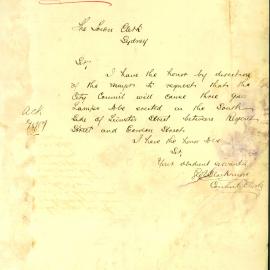 The Town Clerk
Sydney
Sir,
I have the honor by direction
of the mayor to request that the
City Council will cause three gas
Lamps to be erected in the South
side of Street between Regent
Street and Gordon Street.
I have the honor to be
Sir,
Your obedient servant
Council Clerk
Ack